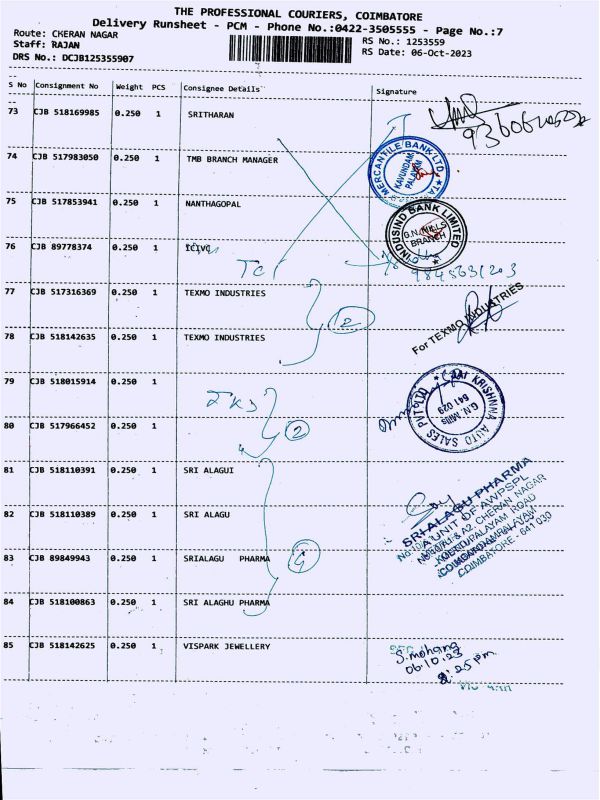 THE PROFESSIONAL COURIERS, COIMBATORE
Delivery Runsheet - PCM - Phone No.:0422-3505555 - Page No.:7
Route: CHERAN NAGAR
RS No.: 1253559
Staff: RAJAN
RS Date: 06-Oct-2023
DRS No.: DCJB125355907
S No Consignment No Weight PCS Consignee Details Signature
73 CJB 518169985 0.250 1 SRITHARAN
74 CJB 517983050 0.250 1 TMB BRANCH MANAGER
MERCANTILE BANK LTD.
KAVUNDAM
PALAYAM
75 CJB 517853941 0.250 1 NANTHAGOPAL
INDUSIND BANK LIMITED
G.N. MILLS
BRANCH
76 CJB 89778374 0.250 1
77 CJB 517316369 0.250 1 TEXMO INDUSTRIES
2
For TEXMO INDUSTRIES
78 CJB 518142635 0.250 1 TEXMO INDUSTRIES
79 CJB 518015914 0.250 1
SAI KRISHNNA AUTO SALES PVT LTD
G.N. Mills
641 029
80 CJB 517966452 0.250 1
2
81 CJB 518110391 0.250 1 SRI ALAGUI
82 CJB 518110389 0.250 1 SRI ALAGU
SRI ALAGU PHARMA
A UNIT OF AWPSPL
CHERAN NAGAR
COIMBATORE - 641 030
83 CJB 89849943 0.250 1 SRIALAGU PHARMA
4
84 CJB 518100863 0.250 1 SRI ALAGHU PHARMA
85 CJB 518142625 0.250 1 VISPARK JEWELLERY
S.mohana
06.10.23